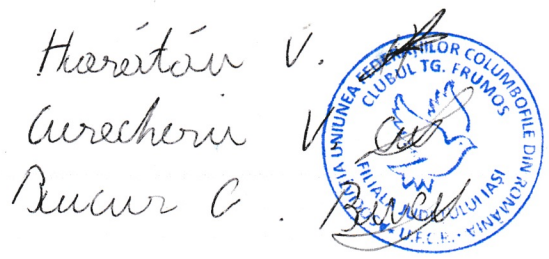 Harátáu V.
Curecheriu V.
Bucur C.
ASOCIAȚIA UNIUNEA FEDERAȚIILOR COLUMBOFILE DIN ROMÂNIA
CLUBUL TG. FRUMOS
FILIALA JUDEȚULUI IAȘI
• U.F.C.R. •